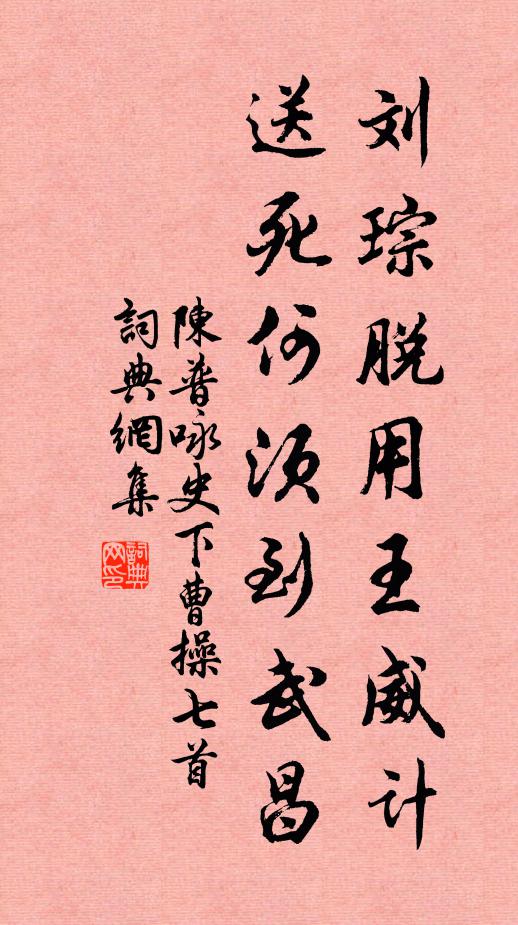 刘琮脱用王威计
送死何须到武昌
陳普咏史下曹操七首
詞典網集
詞典網印